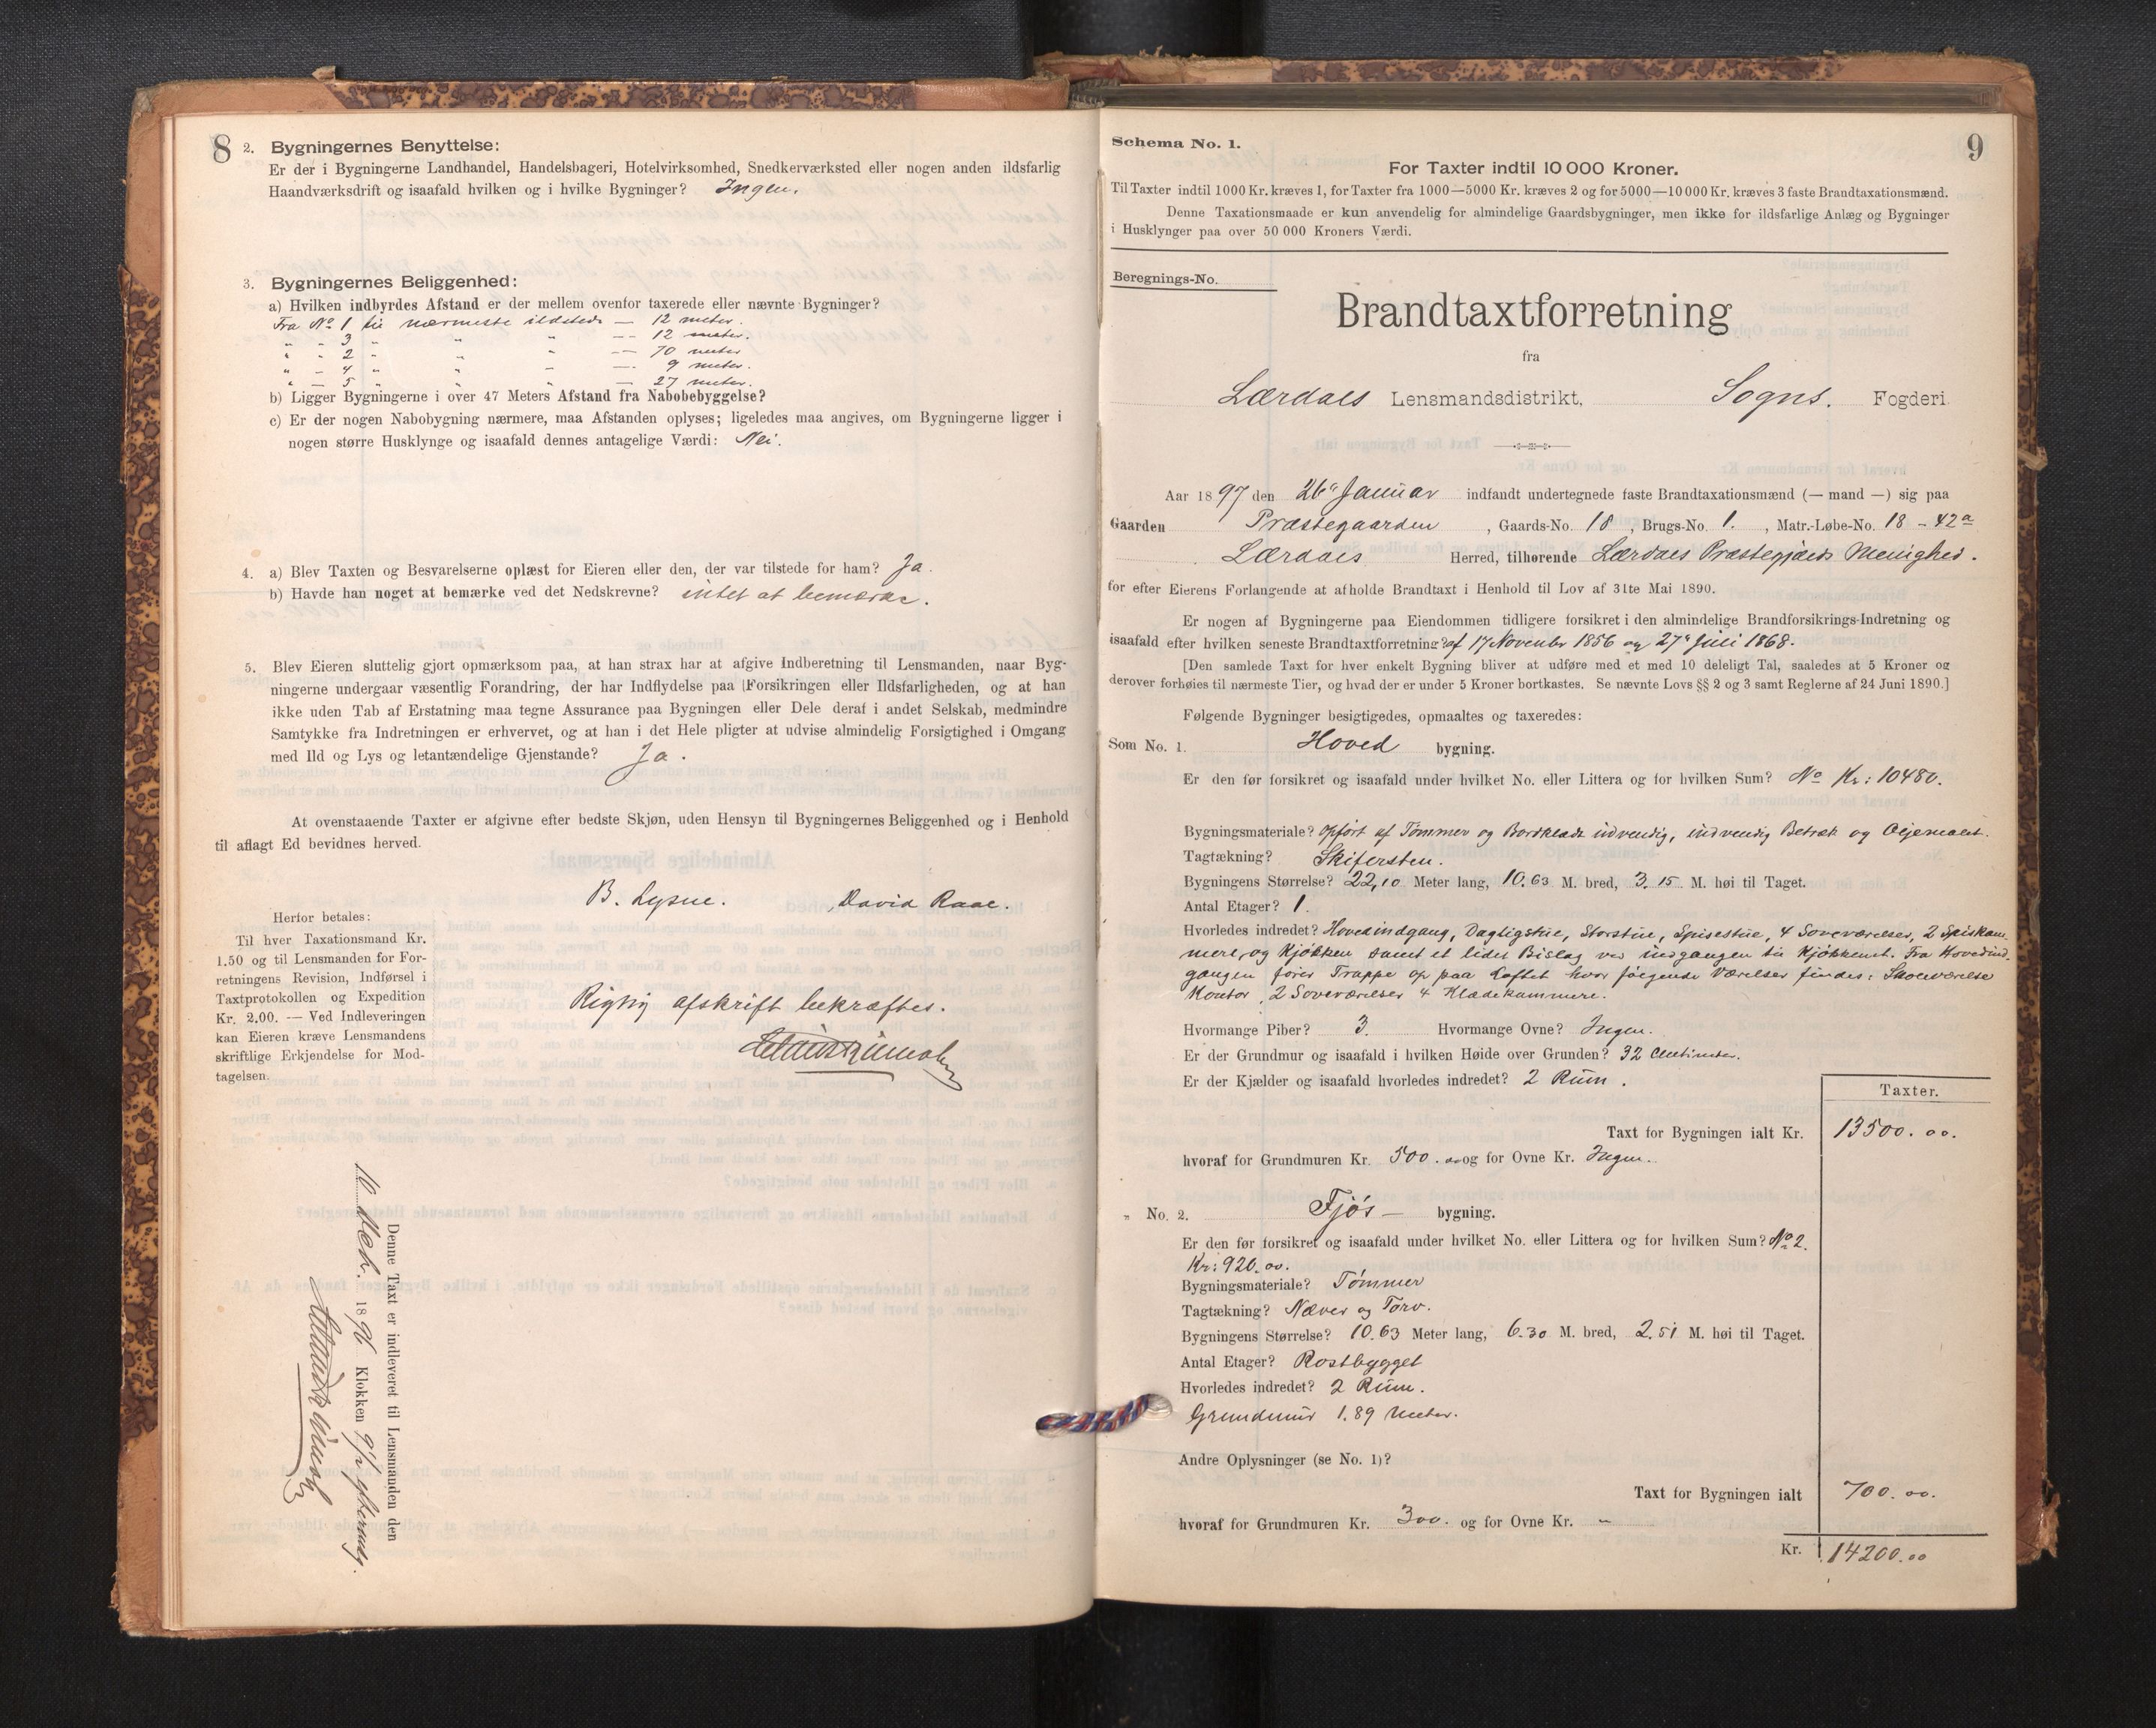 8
2. Bygningernes Benyttelse:
Er der i Bygningerne Landhandel, Handelsbageri, Hotelvirksomhed, Snedkerværksted eller nogen anden ildsfarlig
Haandværksdrift og isaafald hvilken og i hvilke Bygninger? Ingen.
3. Bygningernes Beliggenhed:
a) Hvilken indbyrdes Afstand er der mellem ovenfor taxerede eller nævnte Bygninger?
Fra No 1 til nærmeste ildsteds — 12 meter.
" - 3 " " " — 12 meter.
" - 2 " " " — 70 meter
" - 4 " " " — 9 meter.
" - 5 " " " — 27 meter.
b) Ligger Bygningerne i over 47 Meters Afstand fra Nabobebyggelse?
c) Er der nogen Nabobygning nærmere, maa Afstanden oplyses; ligeledes maa angives, om Bygningerne ligger i
nogen større Husklynge og isaafald dennes antagelige Værdi: Nei.
4. a) Blev Taxten og Besvarelserne oplæst for Eieren eller den, der var tilstede for ham? Ja.
b) Havde han noget at bemærke ved det Nedskrevne? intet at bemærke.
5. Blev Eieren sluttelig gjort opmærksom paa, at han strax har at afgive Indberetning til Lensmanden, naar Byg-
ningerne undergaar væsentlig Forandring, der har Indflydelse paa Forsikringen eller Ildsfarligheden, og at han
ikke uden Tab af Erstatning maa tegne Assurance paa Bygningen eller Dele deraf i andet Selskab, medmindre
Samtykke fra Indretningen er erhvervet, og at han i det Hele pligter at udvise almindelig Forsigtighed i Omgang
med Ild og Lys og letantændelige Gjenstande? Ja.
At ovenstaaende Taxter er afgivne efter bedste Skjøn, uden Hensyn til Bygningernes Beliggenhed og i Henhold
til aflagt Ed bevidnes herved.
B. Lysne. David Raae.
Herfor betales:
Til hver Taxationsmand Kr.
1.50 og til Lensmanden for For-
retningens Revision, Indførsel i
Taxtprotokollen og Expedition
Kr. 2.00. — Ved Indleveringen
kan Eieren kræve Lensmandens
skriftlige Erkjendelse for Mod-
tagelsen.
Rigtig afskrift bekræftes.
Denne Taxt er indleveret til Lensmanden den
10 Dec. 1896 Klokken 9½ efterm.
9
Schema No. 1.
For Taxter indtil 10 000 Kroner.
Til Taxter indtil 1000 Kr. kræves 1, for Taxter fra 1000—5000 Kr. kræves 2 og for 5000—10 000 Kr. kræves 3 faste Brandtaxationsmænd.
Denne Taxationsmaade er kun anvendelig for almindelige Gaardsbygninger, men ikke for ildsfarlige Anlæg og Bygninger
i Husklynger paa over 50 000 Kroners Værdi.
Beregnings-No.
Brandtaxtforretning
fra
Lærdals Lensmandsdistrikt, Sogns. Fogderi
Aar 1897 den 26de Januar indfandt undertegnede faste Brandtaxationsmænd (— mand —) sig paa
Gaarden Præstegaarden, Gaards-No. 18, Brugs-No. 1., Matr.-Løbe-No. 18 - 42a
Lærdals Herred, tilhørende Lærdals Præstegjælds Menighed.
for efter Eierens Forlangende at afholde Brandtaxt i Henhold til Lov af 31te Mai 1890.
Er nogen af Bygningerne paa Eiendommen tidligere forsikret i den almindelige Brandforsikrings-Indretning og
isaafald efter hvilken seneste Brandtaxtforretning? af 17 November 1856 og 27de Juli 1868.
[Den samlede Taxt for hver enkelt Bygning bliver at udføre med et med 10 deleligt Tal, saaledes at 5 Kroner og
derover forhøies til nærmeste Tier, og hvad der er under 5 Kroner bortkastes. Se nævnte Lovs §§ 2 og 3 samt Reglerne af 24 Juni 1890.]
Følgende Bygninger besigtigedes, opmaaltes og taxeredes:
Som No. 1. Hoved bygning.
Er den før forsikret og isaafald under hvilket No. eller Littera og for hvilken Sum? No Kr: 10480.
Bygningsmateriale? opført af Tømmer og Bordklædt udvendig, indvendig Betræk og Oljemalet.
Tagtækning? Skifersten.
Bygningens Størrelse? 22,10 Meter lang, 10.63 M. bred, 3.15 M. høi til Taget.
Antal Etager? 1.
Hvorledes indredet? Hovedindgang, Dagligstue, Storstue, Spisestue, 4 Soveværelser, 2 Spiskam-
mere, og Kjøkken samt et lidet Bislag ved indgangen til Kjøkkenet. Fra Hovedind-
gangen fører Trappe op paa Loftet hvor følgende Værelser findes: Skoleværelse
Kontor, 2 Soveværelser 4 Klædekammere.
Hvormange Piber? 3. Hvormange Ovne? Ingen.
Er der Grundmur og isaafald i hvilken Høide over Grunden? 32 Centimeter.
Er der Kjælder og isaafald hvorledes indredet? 2 Rum.
Taxter.
Taxt for Bygningen ialt Kr. 13500.00.
hvoraf for Grundmuren Kr. 500.00 og for Ovne Kr. Ingen.
" No. 2. Fjøs — bygning.
Er den før forsikret og isaafald under hvilket No. eller Littera og for hvilken Sum? No 2.
Kr: 920.00.
Bygningsmateriale? Tømmer
Tagtækning? Næver og Torv.
Bygningens Størrelse? 10.63 Meter lang, 6.30 M. bred, 2.51 M. høi til Taget.
Antal Etager? Rostbygget
Hvorledes indredet? 2 Rum.
Grundmur 1.89 Meter.
Andre Oplysninger (se No. 1)?
Taxt for Bygningen ialt 700.00.
hvoraf for Grundmuren Kr. 300. og for Ovne Kr. "
Kr. 14200.00